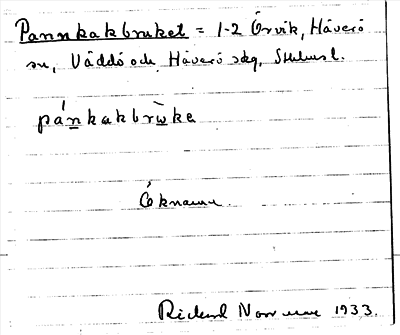 Pannkakbruket = 1-2 Örvik, Häverö
sn, Väddö och Häverö skg, Sthms l.
pánkakbrùke
Öknamn.
Rickard Norrman 1933.